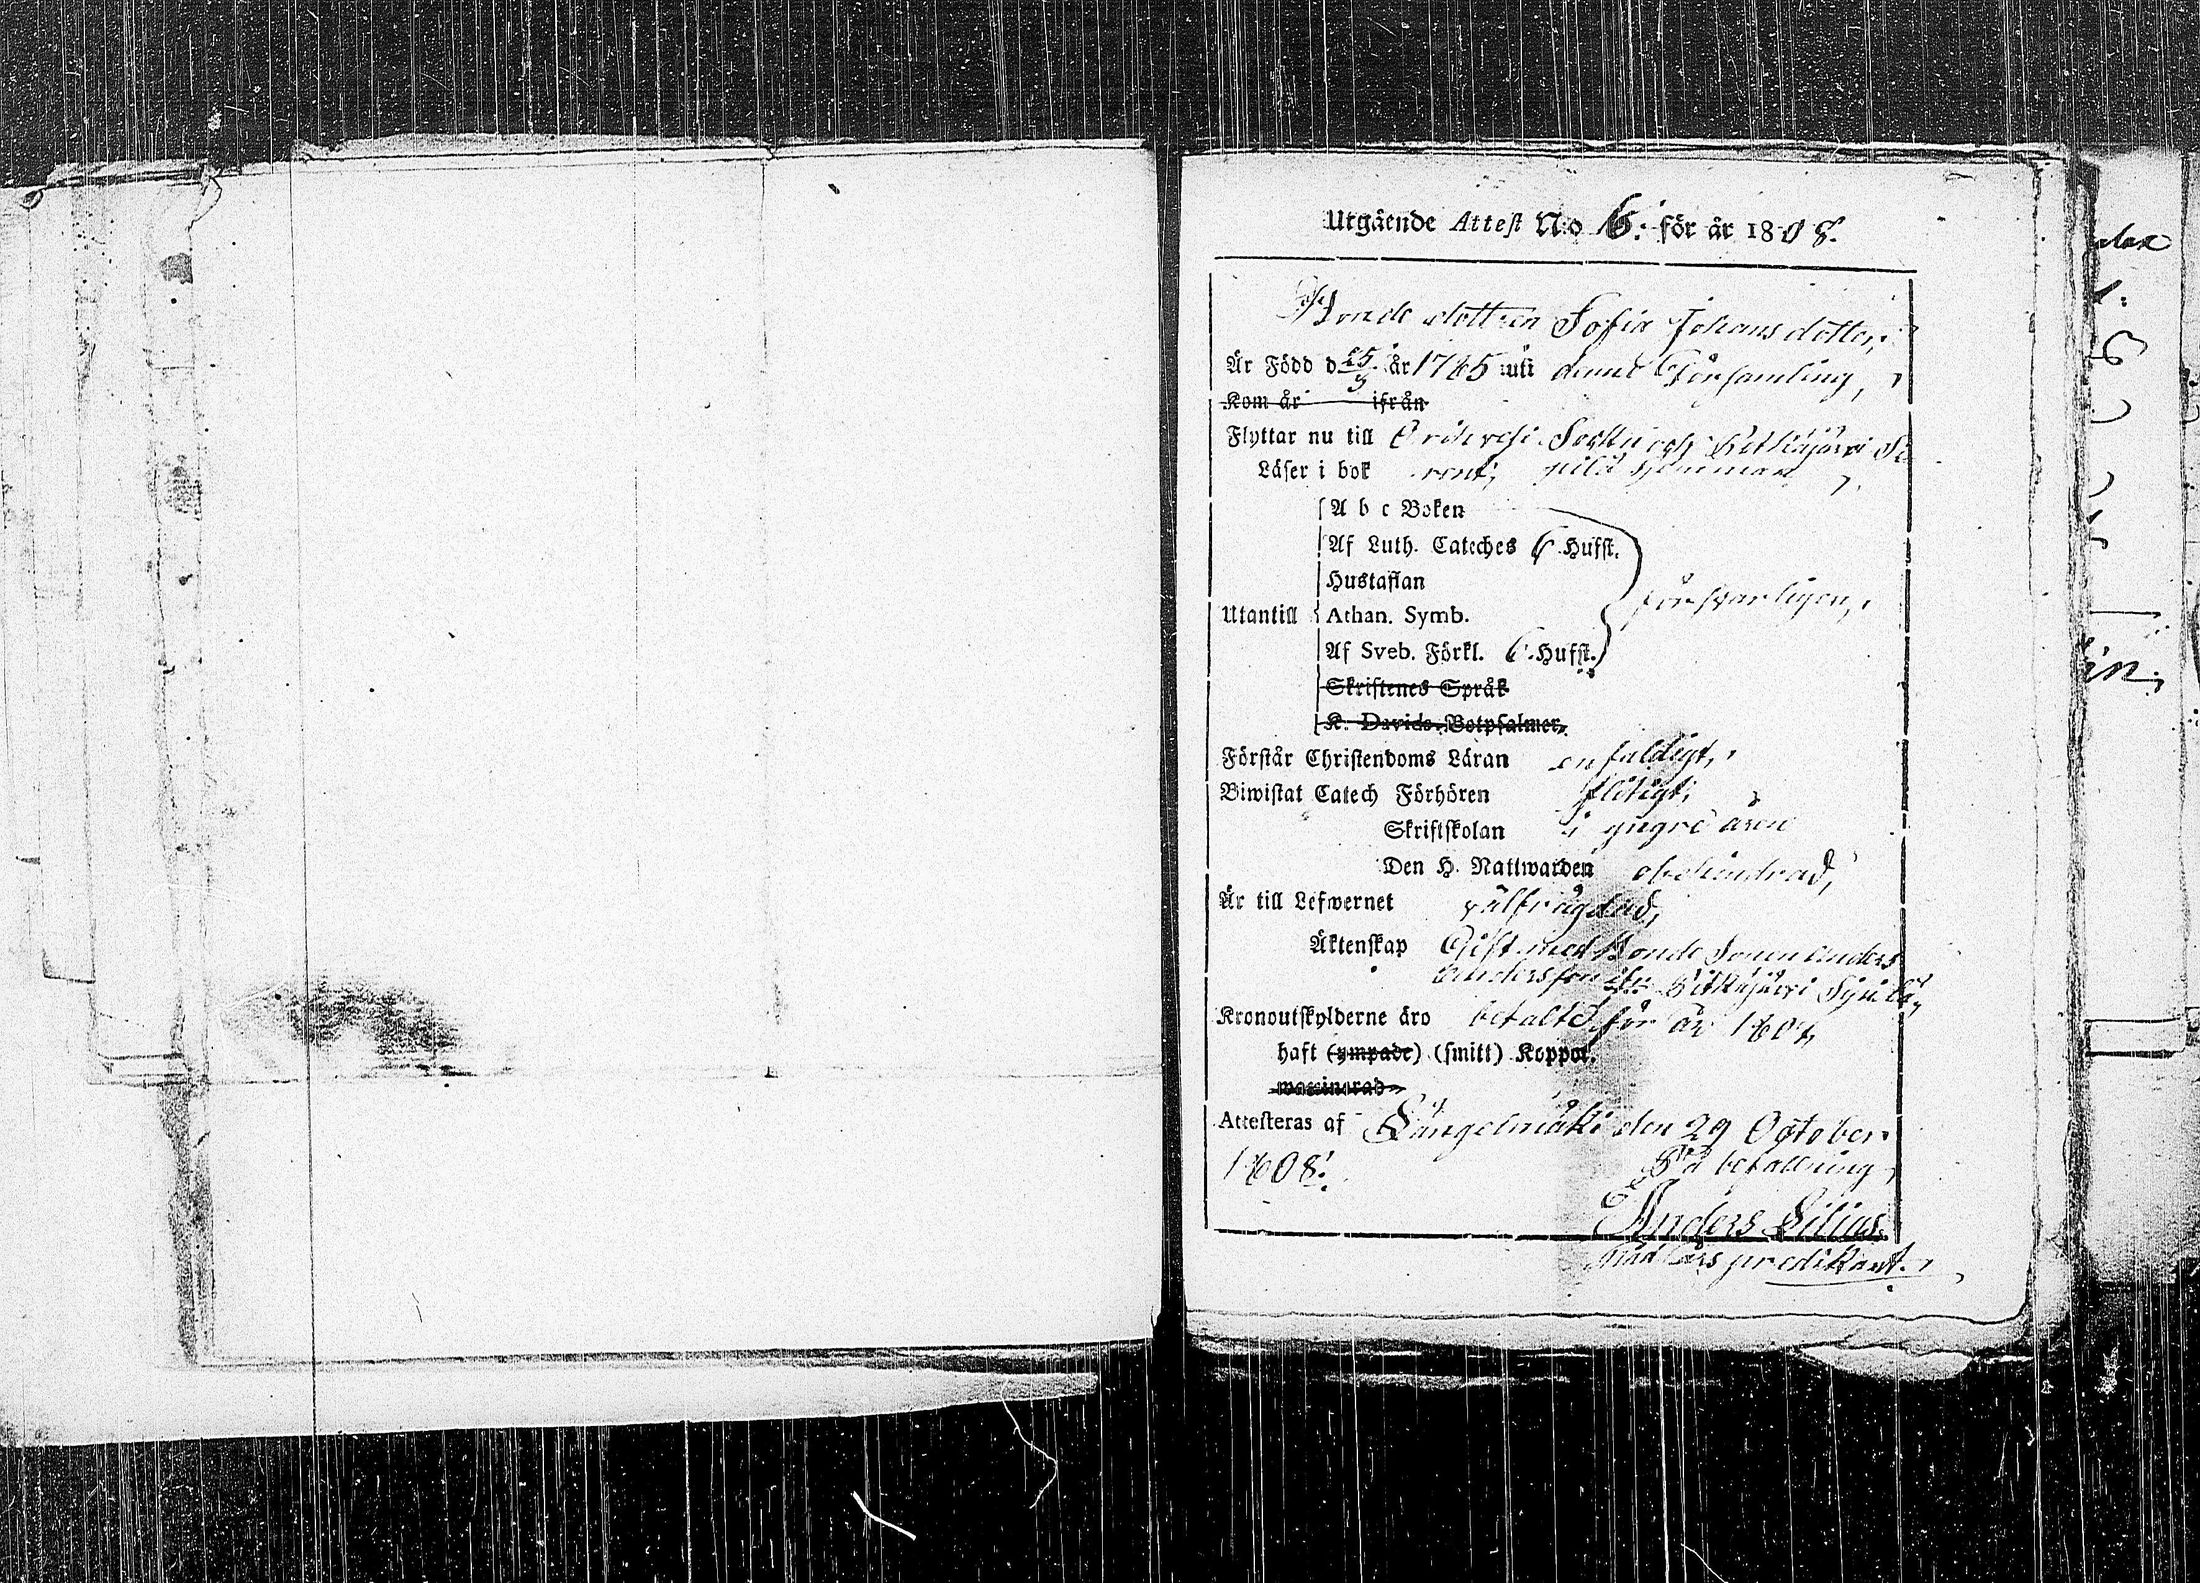 Utgående Attest N:o 6: för år 1808.
Bonde dottren Sofia Johans dotter,
Är Född d 25/9 år 1785 uti denne Församling,
Kom år ifrån
Flyttar nu till Orihvesi Sockn och Pitkäjärvi
Läser i bok rent,
A b c Boken
Af Luth. Cateches 6 Hufst.
Hustaflan
försvarligen,
Utantill Athan. Symb.
Af Sveb. Förkl. 6. Hufst.
Skriftenes Språk
K. Davids Botpsalmer,
Förstår Christendoms Läran enfaldigt,
Biwistat Catech Förhören flitigt,
Skriftskolan i yngre åren
Den H. Nattwarden obehindrad,
Är till Lefwernet välfrägdad,
Äktenskap Gift med Bonde Sonen Anders
Andersson Pitkäjärvi
Kronoutskylderne äro betalte för år 1807,
haft (ympade) (smitt) Koppor.
waccinerad
Attesteras af Längelmäki den 29 October
1808:
På befallning,
Anders Lilius.
Nådårs predikant.